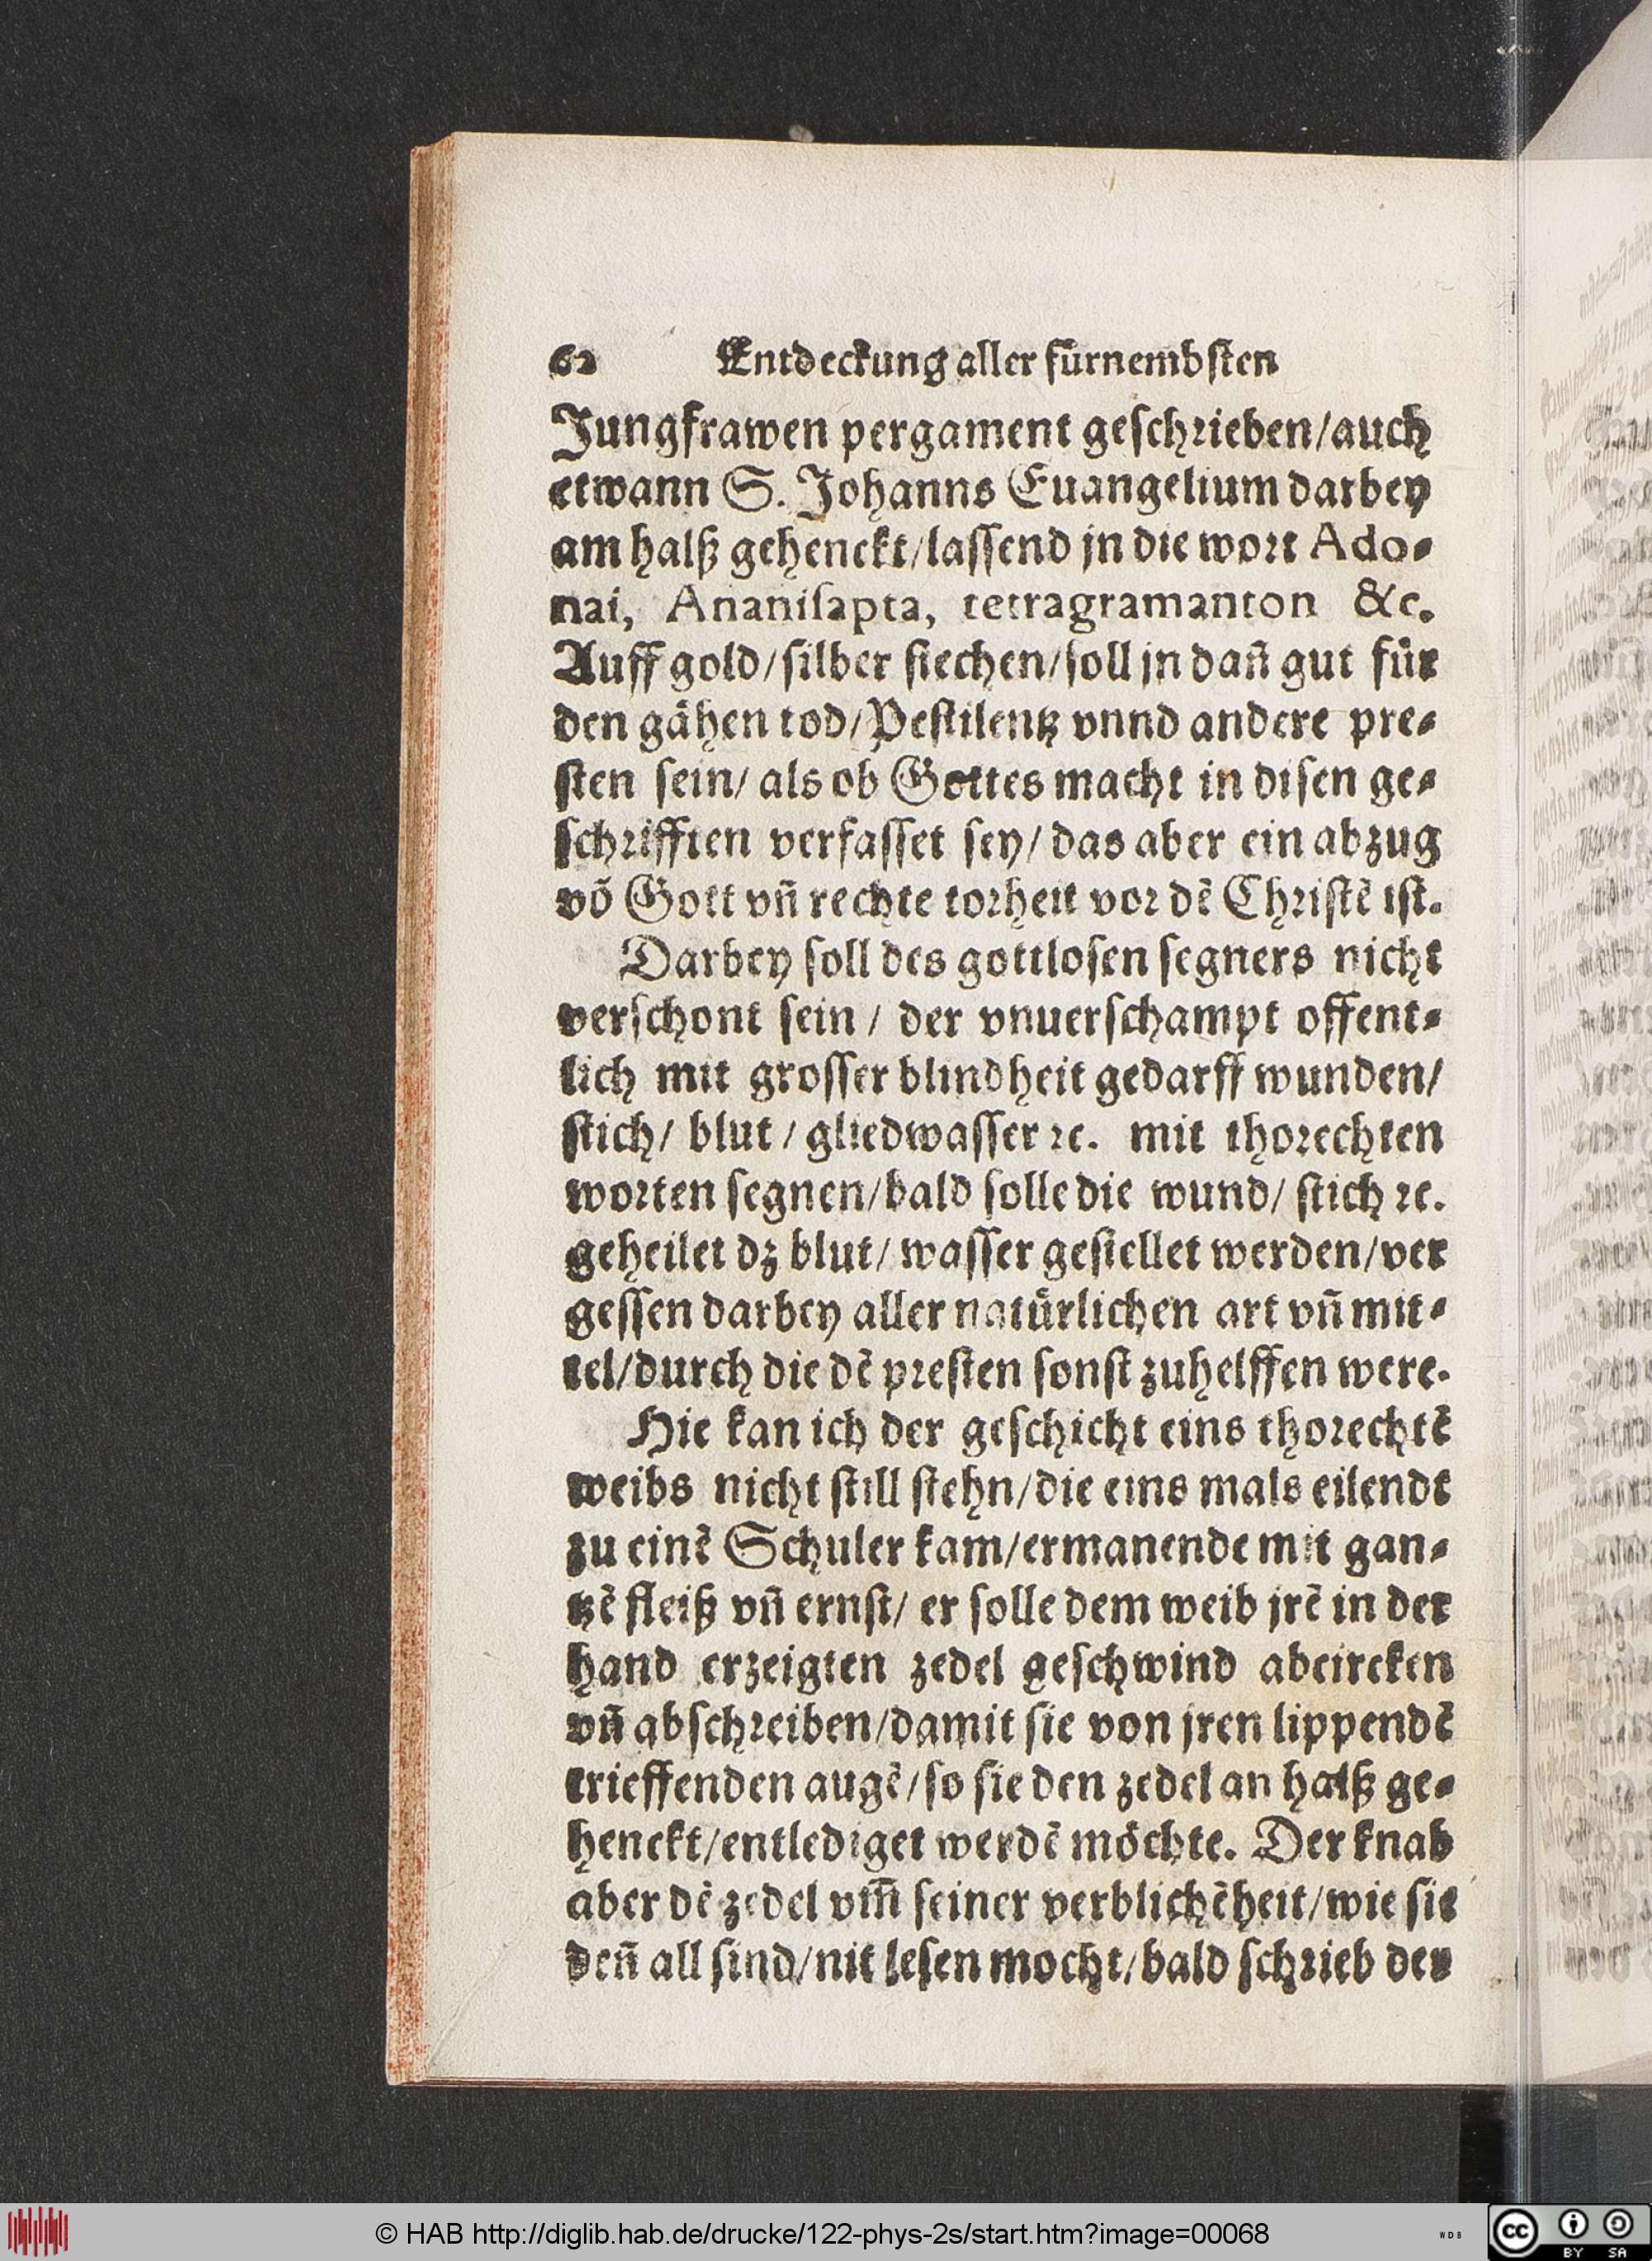 62 Entdeckung aller fürnembsten
Jungfrawen pergament geschrieben/auch
etwann S. Johanns Euangelium darbey
am halß gehenckt/lassend jn die wort Ado⸗
nai, Ananisapta, tetragramanton &c.
Auff gold/silber stechen/soll jn dañ gut für
den gähen tod/Pestilentz vnnd andere pre⸗
sten sein/ als ob Gottes macht in disen ge⸗
schrifften verfasset sey/ das aber ein abzug
võ Gott vñ rechte torheit vor dẽ Christẽ ist.
Darbey soll des gottlosen segners nicht
verschont sein / der vnuerschampt offent⸗
lich mit grosser blindheit gedarff wunden/
stich/ blut / gliedwasser ꝛc. mit thorechten
worten segnen/bald solle die wund/ stich ꝛc.
geheilet dz blut/ wasser gestellet werden/ver
gessen darbey aller natürlichen art vñ mit⸗
tel/durch die dẽ presten sonst zuhelffen were.
Hie kan ich der geschicht eins thorechtẽ
weibs nicht still stehn/die eins mals eilendt
zu einẽ Schuler kam/ermanende mit gan⸗
tzẽ fleiß vñ ernst/ er solle dem weib jrẽ in der
hand erzeigten zedel geschwind abcircken
vñ abschreiben/damit sie von jren lippendẽ
trieffenden augẽ/so sie den zedel an halß ge⸗
henckt/entlediget werdẽ möchte. Der knab
aber dẽ zedel vm̃ seiner verblichẽheit/wie sie
deñ all sind/nit lesen mocht/bald schrieb der
© HAB http://diglib.hab.de/drucke/122-phys-2s/start.htm?image=00068
WDB
cc
BY SA